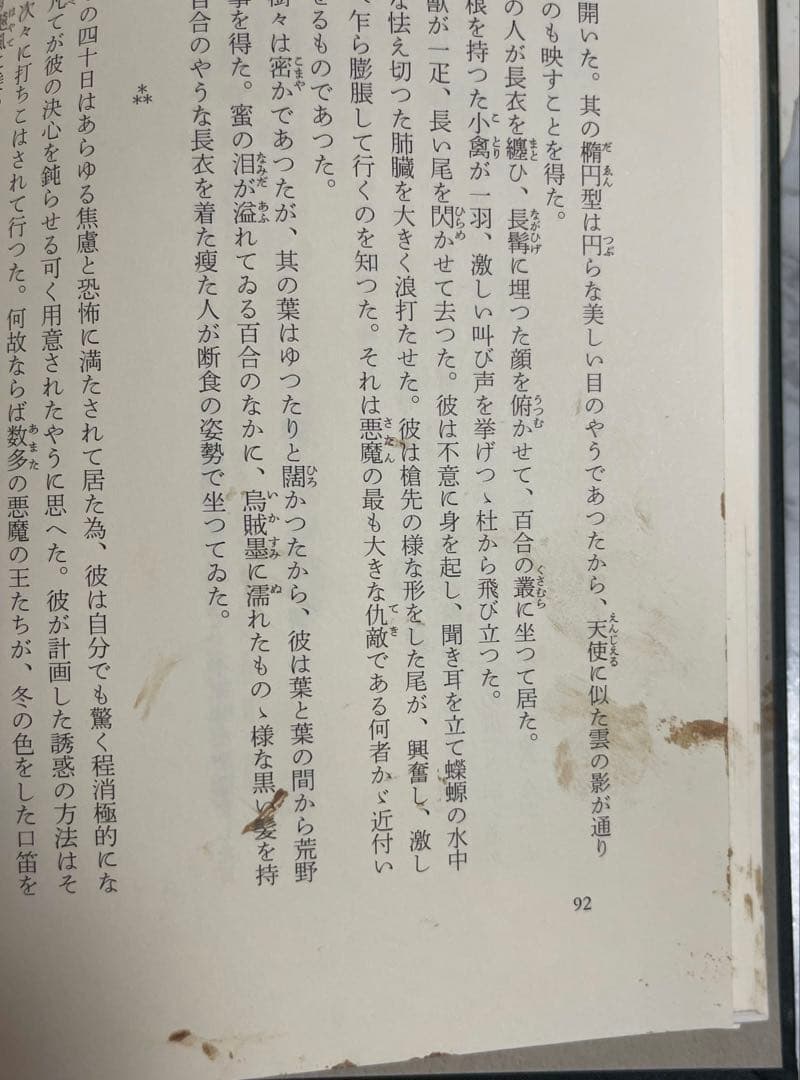 開いた。其の楕円型は円らな美しい目のやうであつたから、天使に似た雲の影が通り
のも映すことを得た。
の人が長衣を纏ひ、長髯に埋つた顔を俯かせて、百合の叢に坐つて居た。
根を持つた小禽が一羽、激しい叫び声を挙げつゝ杜から飛び立つた。
獣が一疋、長い尾を閃かせて去つた。彼は不意に身を起し、聞き耳を立て蠑螈の水中
な怯え切つた肺臓を大きく浪打たせた。彼は槍先の様な形をした尾が、興奮し、激し
乍ら膨脹して行くのを知つた。それは悪魔の最も大きな仇敵である何者かゞ近付い
せるものであつた。
樹々は密かであつたが、其の葉はゆつたりと闊かつたから、彼は葉と葉の間から荒野
事を得た。蜜の泪が溢れてゐる百合のなかに、烏賊墨に濡れたものゝ様な黒い髪を持
百合のやうな長衣を着た痩た人が断食の姿勢で坐つてゐた。
⁂
の四十日はあらゆる焦慮と恐怖に満たされて居た為、彼は自分でも驚く程消極的にな
てが彼の決心を鈍らせる可く用意されたやうに思へた。彼が計画した誘惑の方法はそ
次々に打ちこはされて行つた。何故ならば数多の悪魔の王たちが、冬の色をした口笛を
92